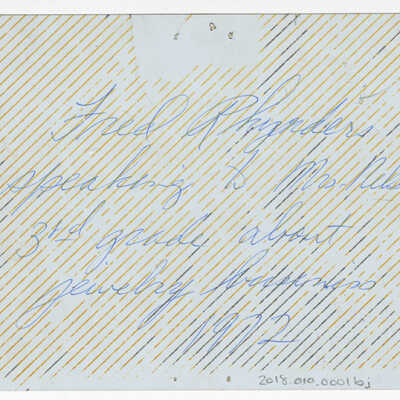 Fred Rhynders
speaking to Mrs.
3rd grade about
jewelry business
1972
2018.010.0001bj